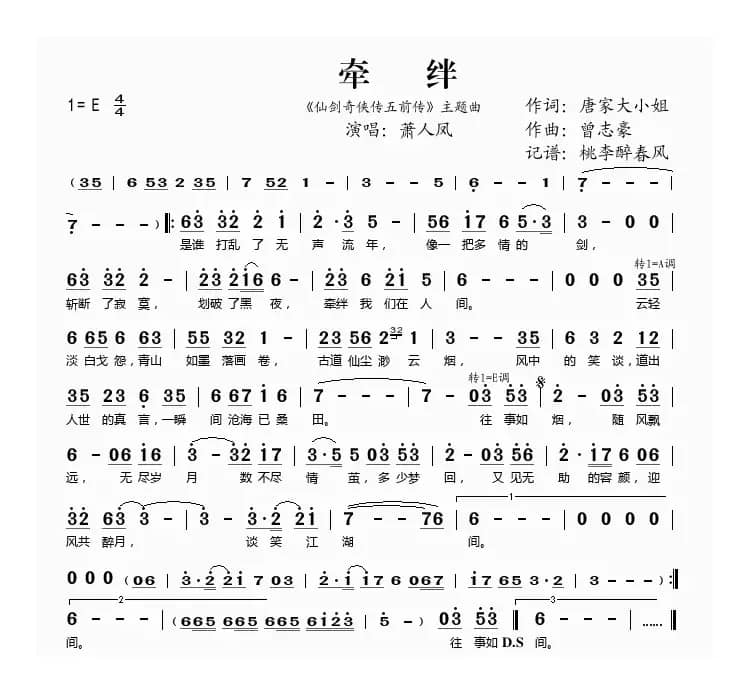 牵 绊
1= E 4/4
《仙剑奇侠传五前传》主题曲
作词：唐家大小姐
演唱：萧人凤
作曲：曾志豪
记谱：桃李醉春风
(35 | 6 53 2 35 | 7 52 1 - | 3 - - 5 | 6 - - 1 | 7 - - -
7 - - ) ‖: 63 32 2 1 | 2 · 3 5 - | 56 17 6 5·3 | 3 - 0 0 |
是谁 打乱 了 无 声 流 年， 像一 把多 情 的 剑，
转1=A调
63 32 2 - | 23 216 6 - | 23 6 21 5 | 6 - - - | 0 0 0 35 |
斩断 了寂 寞， 划破 了黑 夜， 牵绊 我 们在 人 间。 云轻
6 65 6 63 | 55 32 1 - | 23 56 32 2·1 | 3 - - 35 | 6 3 2 12 |
淡 白戈 怨，青山 如墨 落画 卷， 古道 仙尘 渺 云 烟， 风中 的 笑 谈，道出
转1=E调
35 23 6 35 | 6 67 1 6 | 7 - - - | 7 - 03 53 | 2 - 03 53 |
人世 的真 言，一瞬 间 沧海 已 桑 田。 往 事如 烟， 随 风飘
6 - 06 16 | 3 - 32 17 | 3·5 5 03 53 | 2 - 03 56 | 2 · 17 6 06 |
远， 无 尽岁 月 数 不尽 情 茧，多 少梦 回，又 见无 助 的容 颜，迎
32 63 3 - | 3 - 3·2 21 | 7 - - 76 | 6 - - - |
1
风共 醉月， 谈 笑 江 湖 间。
0 0 0 (06 | 3·2 21 7 03 | 2·1 17 6 067 | 17 65 3·2 | 3 - - -) :‖
2
3
6 - - - | (665 665 665 665 | 665 665 6123 | 5 - ) 03 53 | 6 - - - | …… ‖
间。 往 事如 D.S 间。